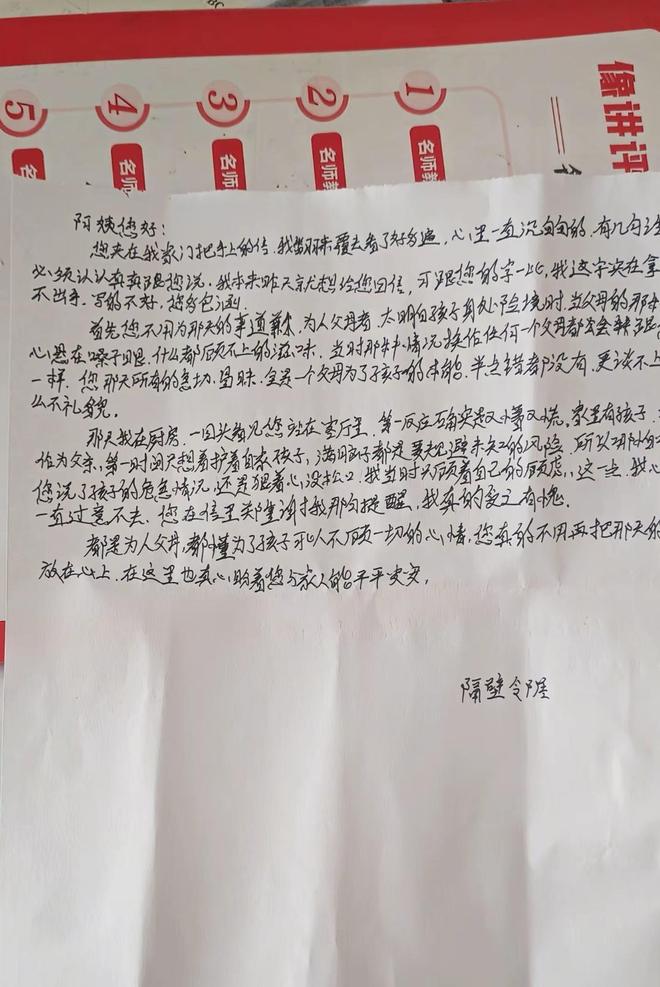 像讲评
1
2
3
4
5
名师教
名师教
名师
名师
名
阿姨您好：
您夹在我家门把手上的信，我翻来覆去看了好多遍，心里一直沉甸甸的，有几句话
必须认认真真跟您说，我本来昨天就想给您回信，可跟您的字一比，我这字实在拿
不出手，写的不好，您多包涵。
首先您不用为那天的事道歉，为人父母者，太明白孩子身处险境时，当父母的那种
心悬在嗓子眼，什么都顾不上的滋味，当时那种情况换作任何一个父母都会
一样，您那天所有的急切、冒昧，全是一个父母为了孩子的本能，半点错都没有，更谈不上
么不礼貌。
那天我在厨房，一回头看见您站在客厅里，第一反应确实是又懵又慌，家里有孩子，
作为父亲，第一时间只想着护着自家孩子，满脑子都是要规避未知的风险，所以
您说了孩子的危急情况，还是狠着心没松口，我当时只顾着自己的顾虑，这一点，我心
一直过意不去，您在信里类隆谢我那句提醒，我真的受之有愧。
都是为人父母，都懂为了孩子可以不顾一切的心情，您真的不用再把那天的
放在心上，在这里也真心盼着您与家人能平平安安，
隔壁令阝屋